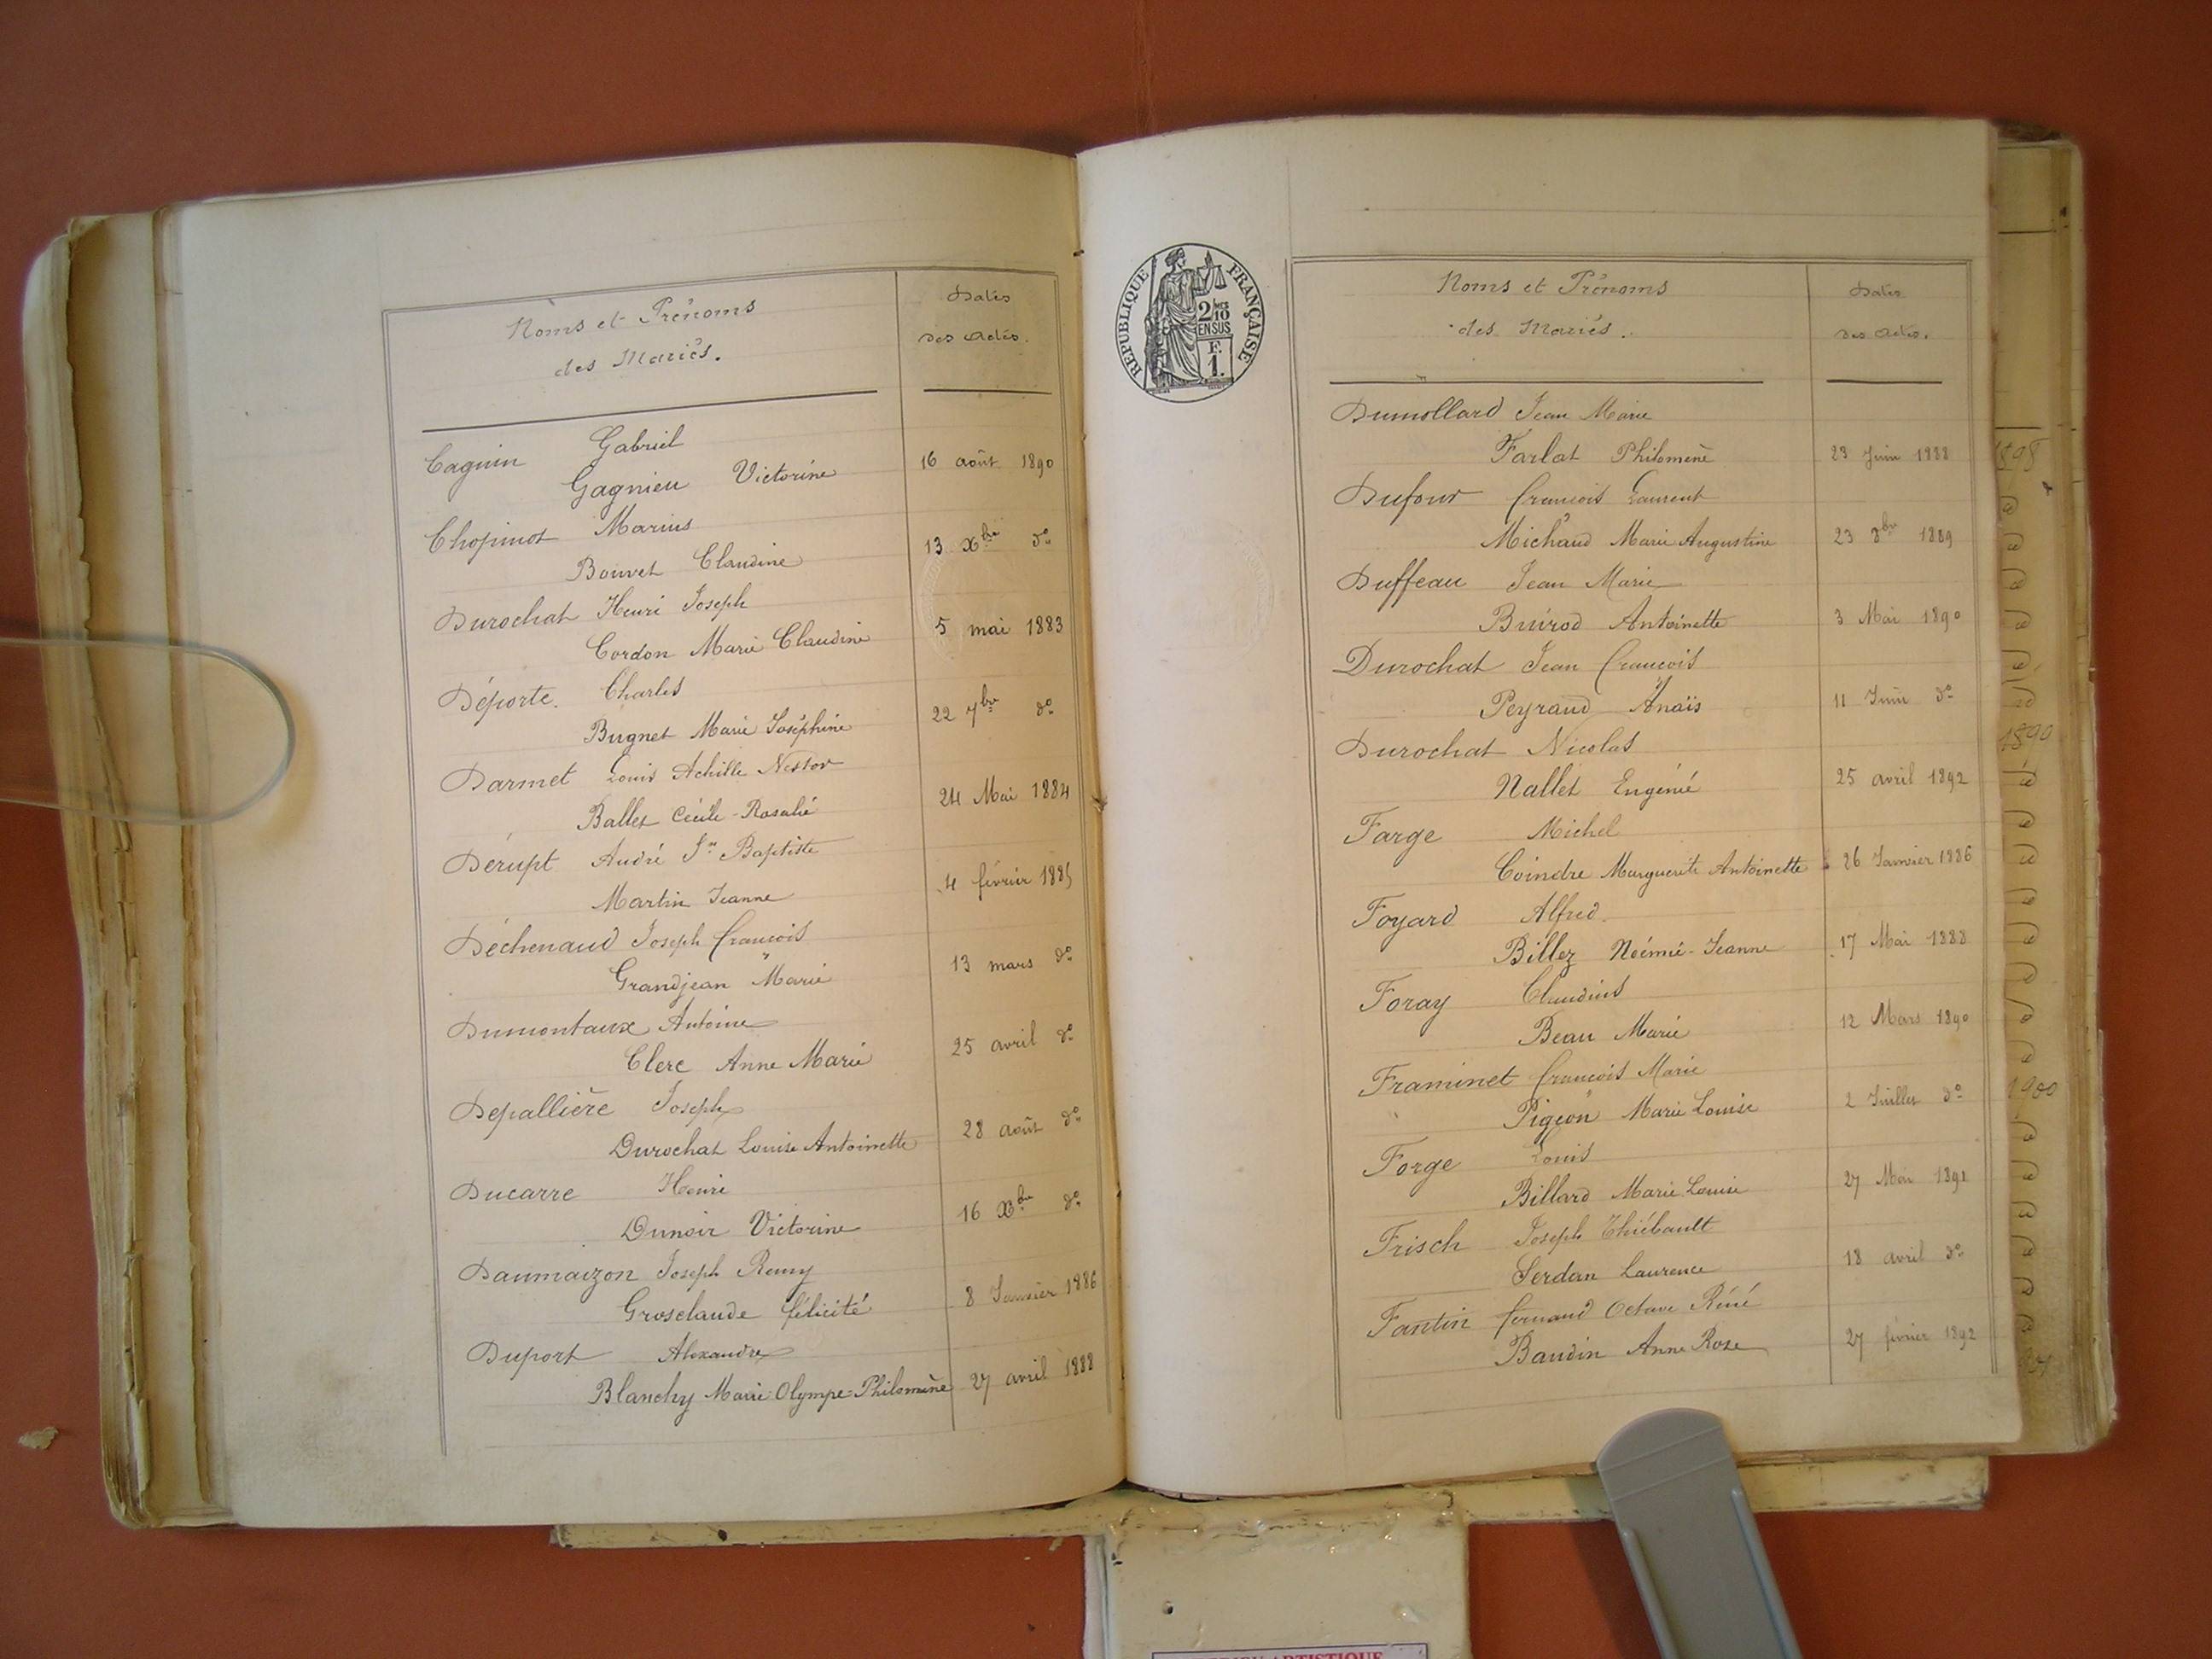 Noms et Prénoms
des Mariés.
Dates
des Actes.
Caguin Gabriel
Gagnieu Victorine 16 août 1890
Chopinot Marius
Bouvet Claudine 13 Xbre do
Durochat Henri Joseph
Cordon Marie Claudine 5 mai 1883
Déporte. Charles
Bugnet Marie Joséphine 22 7bre do
Darmet Louis Achille Nestor
Ballet Cécile-Rosalie 24 Mai 1884
Dérupt André Jn Baptiste
Martin Jeanne 4 février 1885
Déchenaud Joseph François
Grandjean Marie 13 mars do
Dumontaux Antoine
Clerc Anne Marie 25 avril do
Depallière Joseph
Durochat Louise Antoinette 28 août do
Ducarre Henri
Dunoir Victorine 16 Xbre do
Daumaizon Joseph Remy
Groselaude félicité 8 Janvier 1886
Duport Alexandre
Blanchy Marie-Olympe-Philomène 27 avril 1888
RÉPUBLIQUE FRANÇAISE
2/10
EN SUS
F.
1.
Noms et Prénoms
des Mariés.
Dates
des Actes.
Dumollard Jean Marie
Farlat Philomène 23 Juin 1888
Dufour François Laurent
Michaud Marie Augustine 23 8bre 1889
Duffeau Jean Marie
Buirod Antoinette 3 Mai 1890
Durochat Jean François
Peyraud Anaïs 11 Juin do
Durochat Nicolas
Nallet Eugénie 25 avril 1892
Farge Michel
Coindre Marguerite Antoinette 26 Janvier 1886
Foyard Alfred
Billez Noémie-Jeanne 17 Mai 1888
Foray Claudius
Beau Marie 12 Mars 1890
Framinet François Marie
Pigeon Marie Louise 2 Juillet do
Forge Louis
Billard Marie Louise 27 Mai 1891
Frisch Joseph Thiébault
Serdan Laurence 18 avril do
Fantin fernand Octave Réné
Baudin Anne Rose 27 février 1892
1898
1890
1900